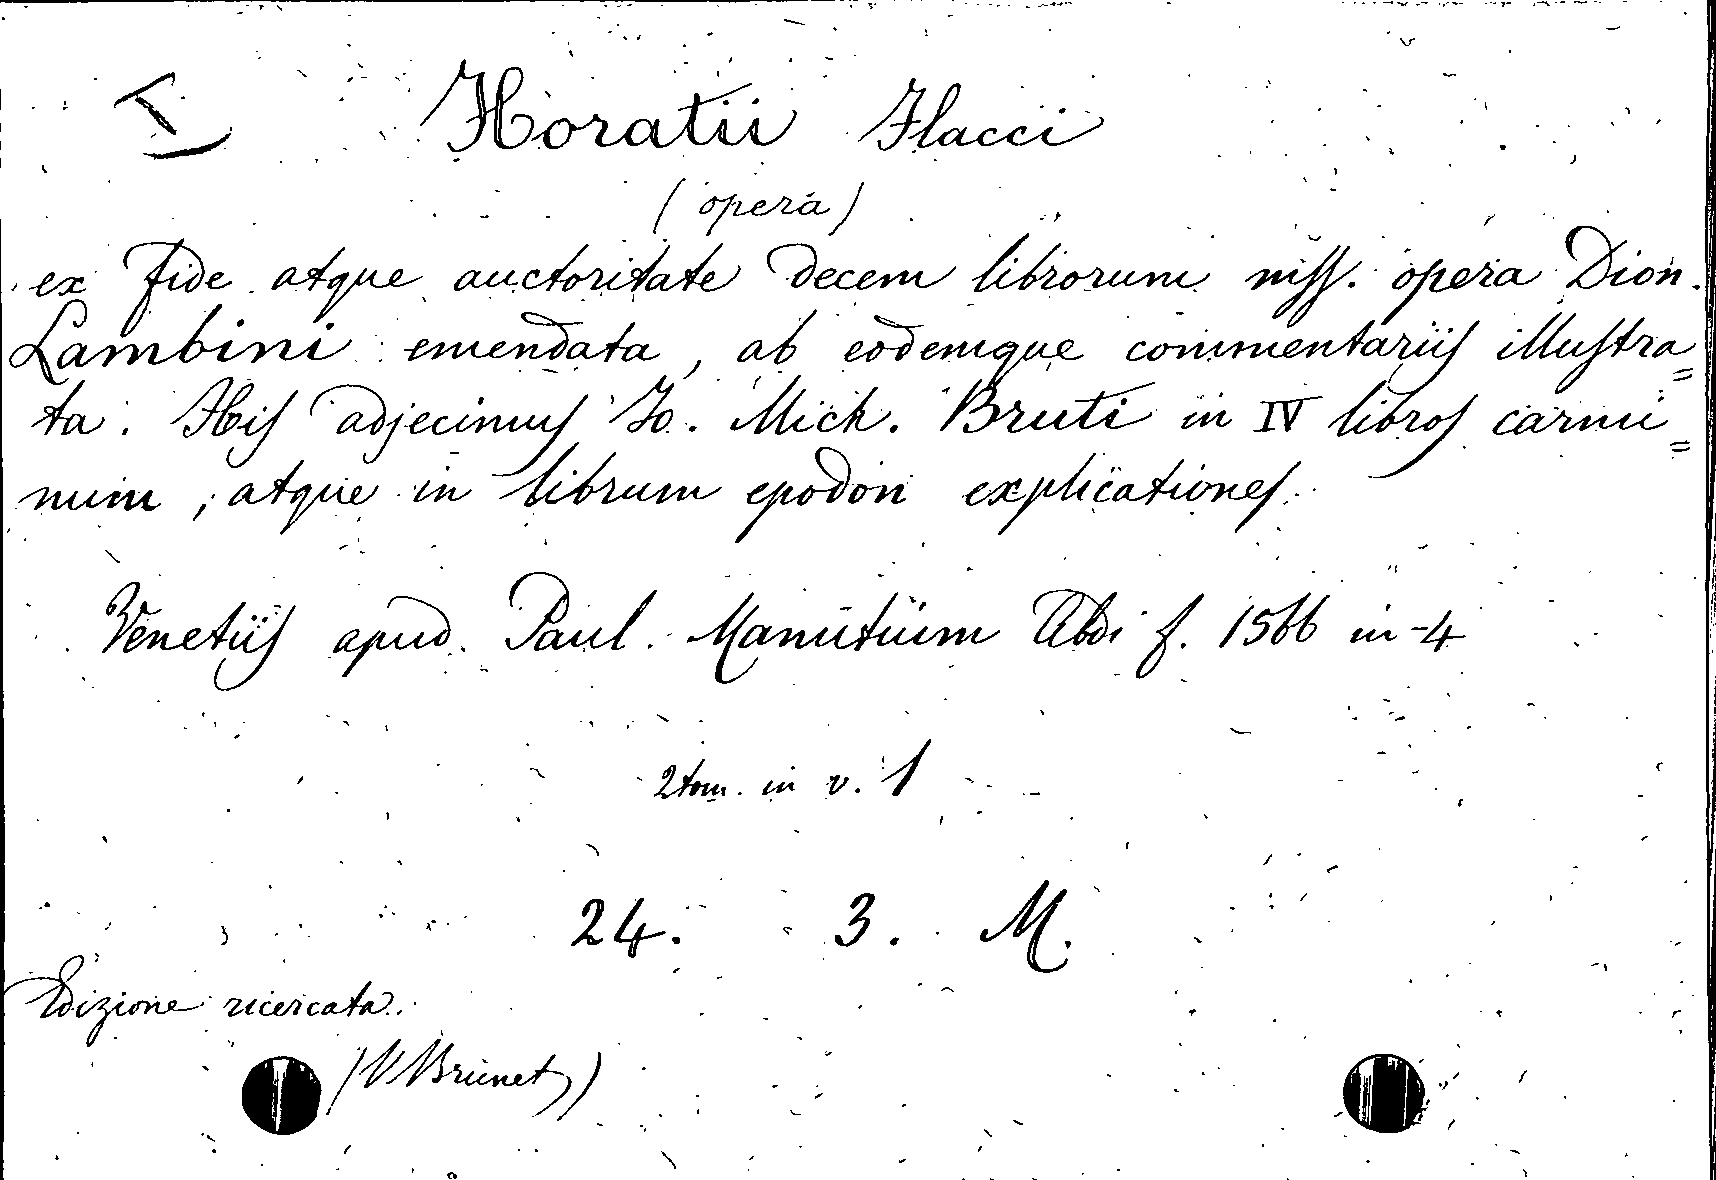 I Horatii Flacci
(opera)
ex fide atque auctoritate decem librorum mss. opera Dion.
Lambini emendata, ab eodemque commentariis illustra=
ta. His adjecimus Jo. Mich. Bruti in IV libros carmi=
num, atque in librum epodon explicationes.
Venetiis apud Paul. Manutium Aldi f. 1566 in-4
2 tom. in v. 1
24. 3. M.
Edizione ricercata.
(V Brunet)